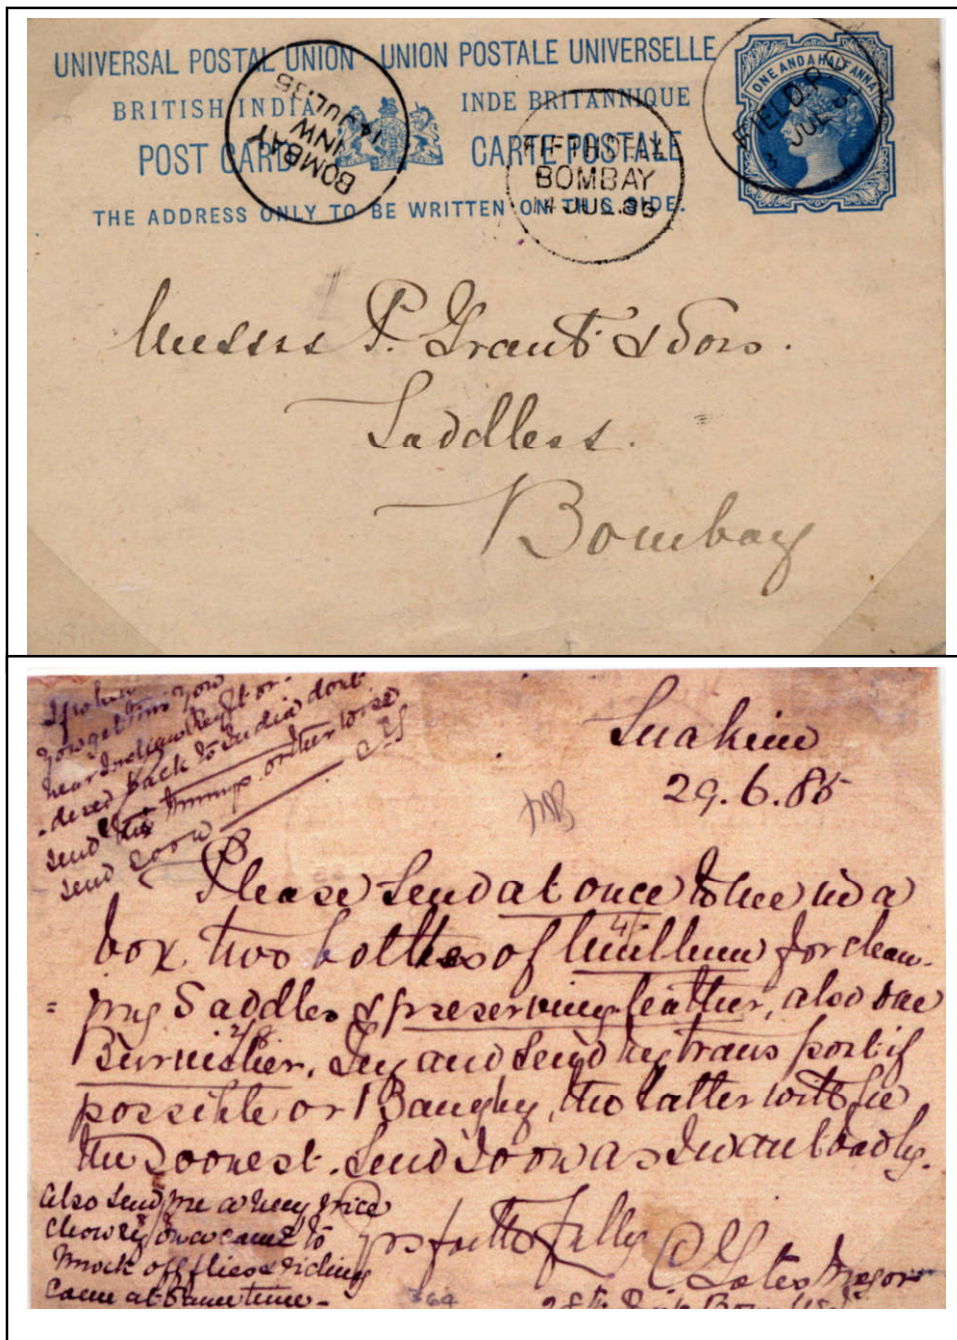 UNIVERSAL POSTAL UNION UNION POSTALE UNIVERSELLE
BRITISH INDIA INDE BRITANNIQUE
POST CARD CARTE POSTALE
THE ADDRESS ONLY TO BE WRITTEN ON THIS SIDE.
BOMBAY
INW
14 JUL. 85
FIFTH DELY
BOMBAY
14 JUL. 85
FIELD P.
JUL
ONE AND A HALF ANNA
Messrs P. Grant & Sons.
Saddlers.
Bombay
If when
you get this you
hear Indian Regt or-
-dered back to India dont
send the things otherwise
send soon
Suakim
29.6.85
Please send at once to me in a
box two bottles of for clean-
= ing Saddles & preserving leather, also one
Burnisher. Try and send by transport if
possible or Banghy, the latter will be
the soonest. Send soon as I want badly.
Also send me a very nice
chowry on a cane to
knock off flies riding
Came at same time -
yrs faithfully C Yates Major